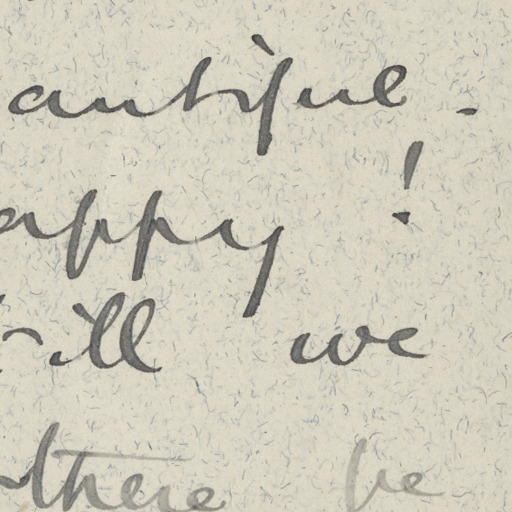 autiful.
appy!
ill we
there be